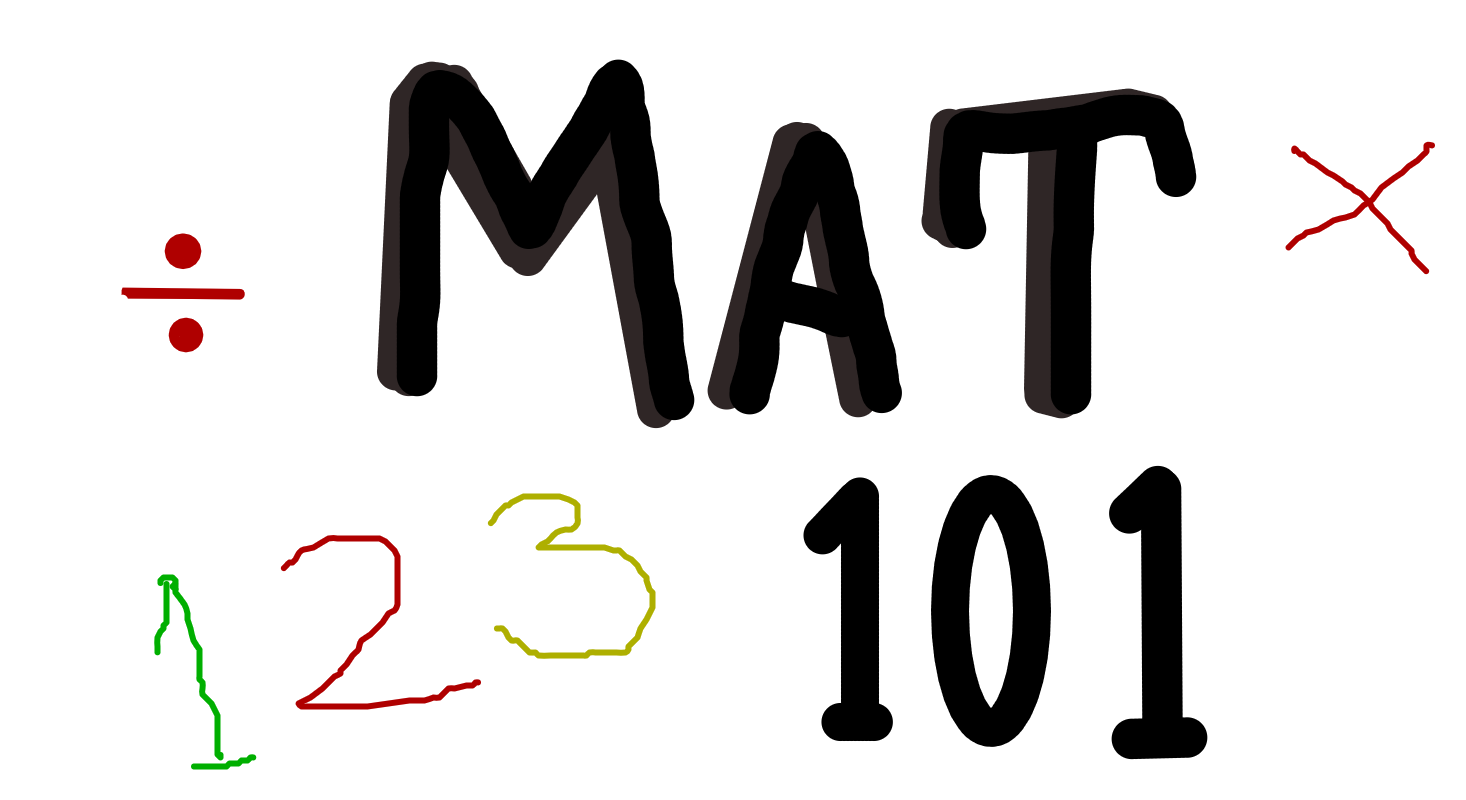 ÷ MAT ×
123 101